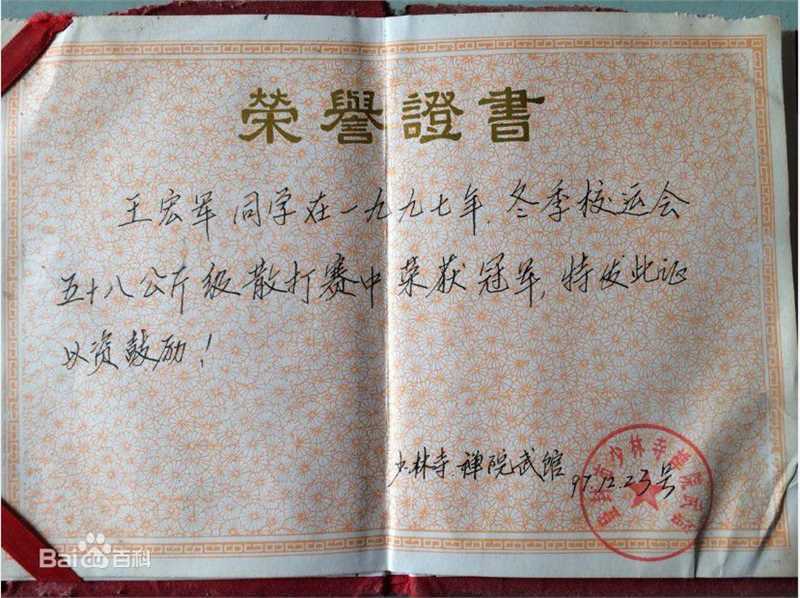 榮譽證書
王宏军同学在一九九七年,冬季校运会
五十八公斤级散打赛中荣获冠军,特发此证
以资鼓励!
少林寺禅院武馆
97.12.23号
Bai百科